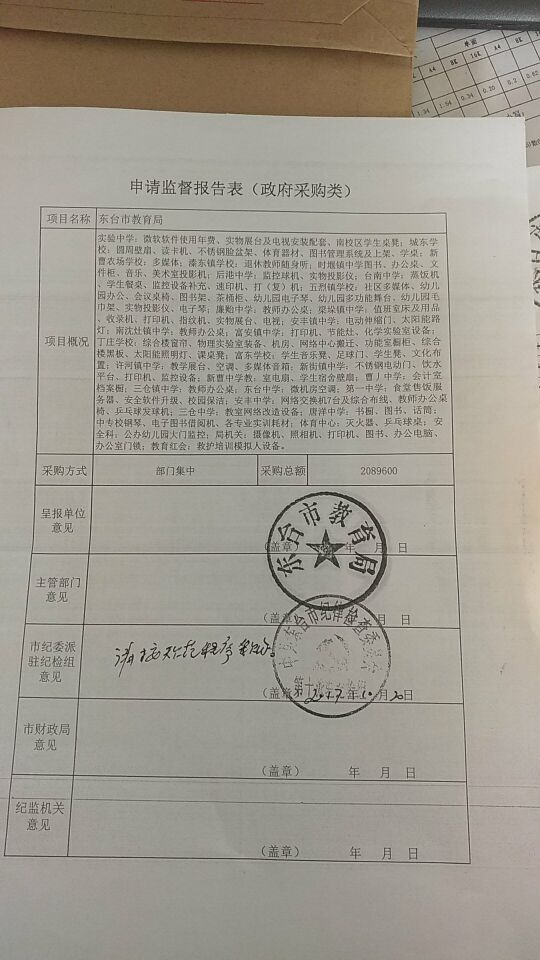 单面
A4 8K 16K A4 8K
1.34 1.54 0.34 0.20 0.2
申请监督报告表（政府采购类）
项目名称 东台市教育局
项目概况
实验中学：微软软件使用年费、实物展台及电视安装配套、南校区学生桌凳；城东学
校：圆周壁扇、读卡机、不锈钢脸盆架、体育器材、图书管理系统及上架、学桌；新
曹农场学校：多媒体；溱东镇学校：退休教师随身听；时堰镇中学图书、办公桌、文
件柜、音乐、美术室投影机；后港中学：监控球机、实物投影仪；台南中学：蒸饭机
、学生餐桌、监控设备补充、速印机、打（复）机；五烈镇学校：社区多媒体、幼儿
园办公、会议桌椅、图书架、茶桶柜、幼儿园电子琴、幼儿园多功能舞台、幼儿园毛
巾架、实物投影仪、电子琴；廉贻中学：教师办公桌；梁垛镇中学：值班室床及用品
、收录机、打印机、指纹机、实物展台、电视；安丰镇中学：电动伸缩门、太阳能路
灯；南沈灶镇中学：教师办公桌；富安镇中学：打印机、节能灶、化学实验室设备；
丁庄学校：综合楼窗帘、物理实验室装备、机房、网络中心搬迁、功能室橱柜、综合
楼黑板、太阳能照明灯、课桌凳；富东学校：学生音乐凳、足球门、学生凳、文化布
置；许河镇中学：教学展台、空调、多媒体音箱；新街镇中学：不锈钢电动门、饮水
平台、打印机、监控设备；新曹中学教：室电扇、学生宿舍壁扇；曹丿中学：会计室
档案橱；三仓镇中学：教师办公桌；东台中学：微机房空调；第一中学：食堂售饭服
务器、安全软件升级、校园保洁；安丰中学：网络交换机7台及综合布线、教师办公桌
椅、乒乓球发球机；三仓中学：教室网络改造设备；唐洋中学：书橱、图书、话筒；
中专校钢琴、电子图书借阅机、各专业实训耗材；体育中心：灭火器、乒乓球桌；安
全科：公办幼儿园大门监控；局机关：摄像机、照相机、打印机、图书、办公电脑、
办公室门锁；教育红会：救护培训模拟人设备。
采购方式 部门集中 采购总额 2089600
呈报单位
意见
（盖章） 年 月 日
东台市教育局
主管部门
意见
（盖章） 年 月 日
市纪委派
驻纪检组
意见
请按规范程序采购。
东台市纪律检查委员会
（盖章） 2017年10月20日
市财政局
意见
（盖章） 年 月 日
纪监机关
意见
（盖章） 年 月 日